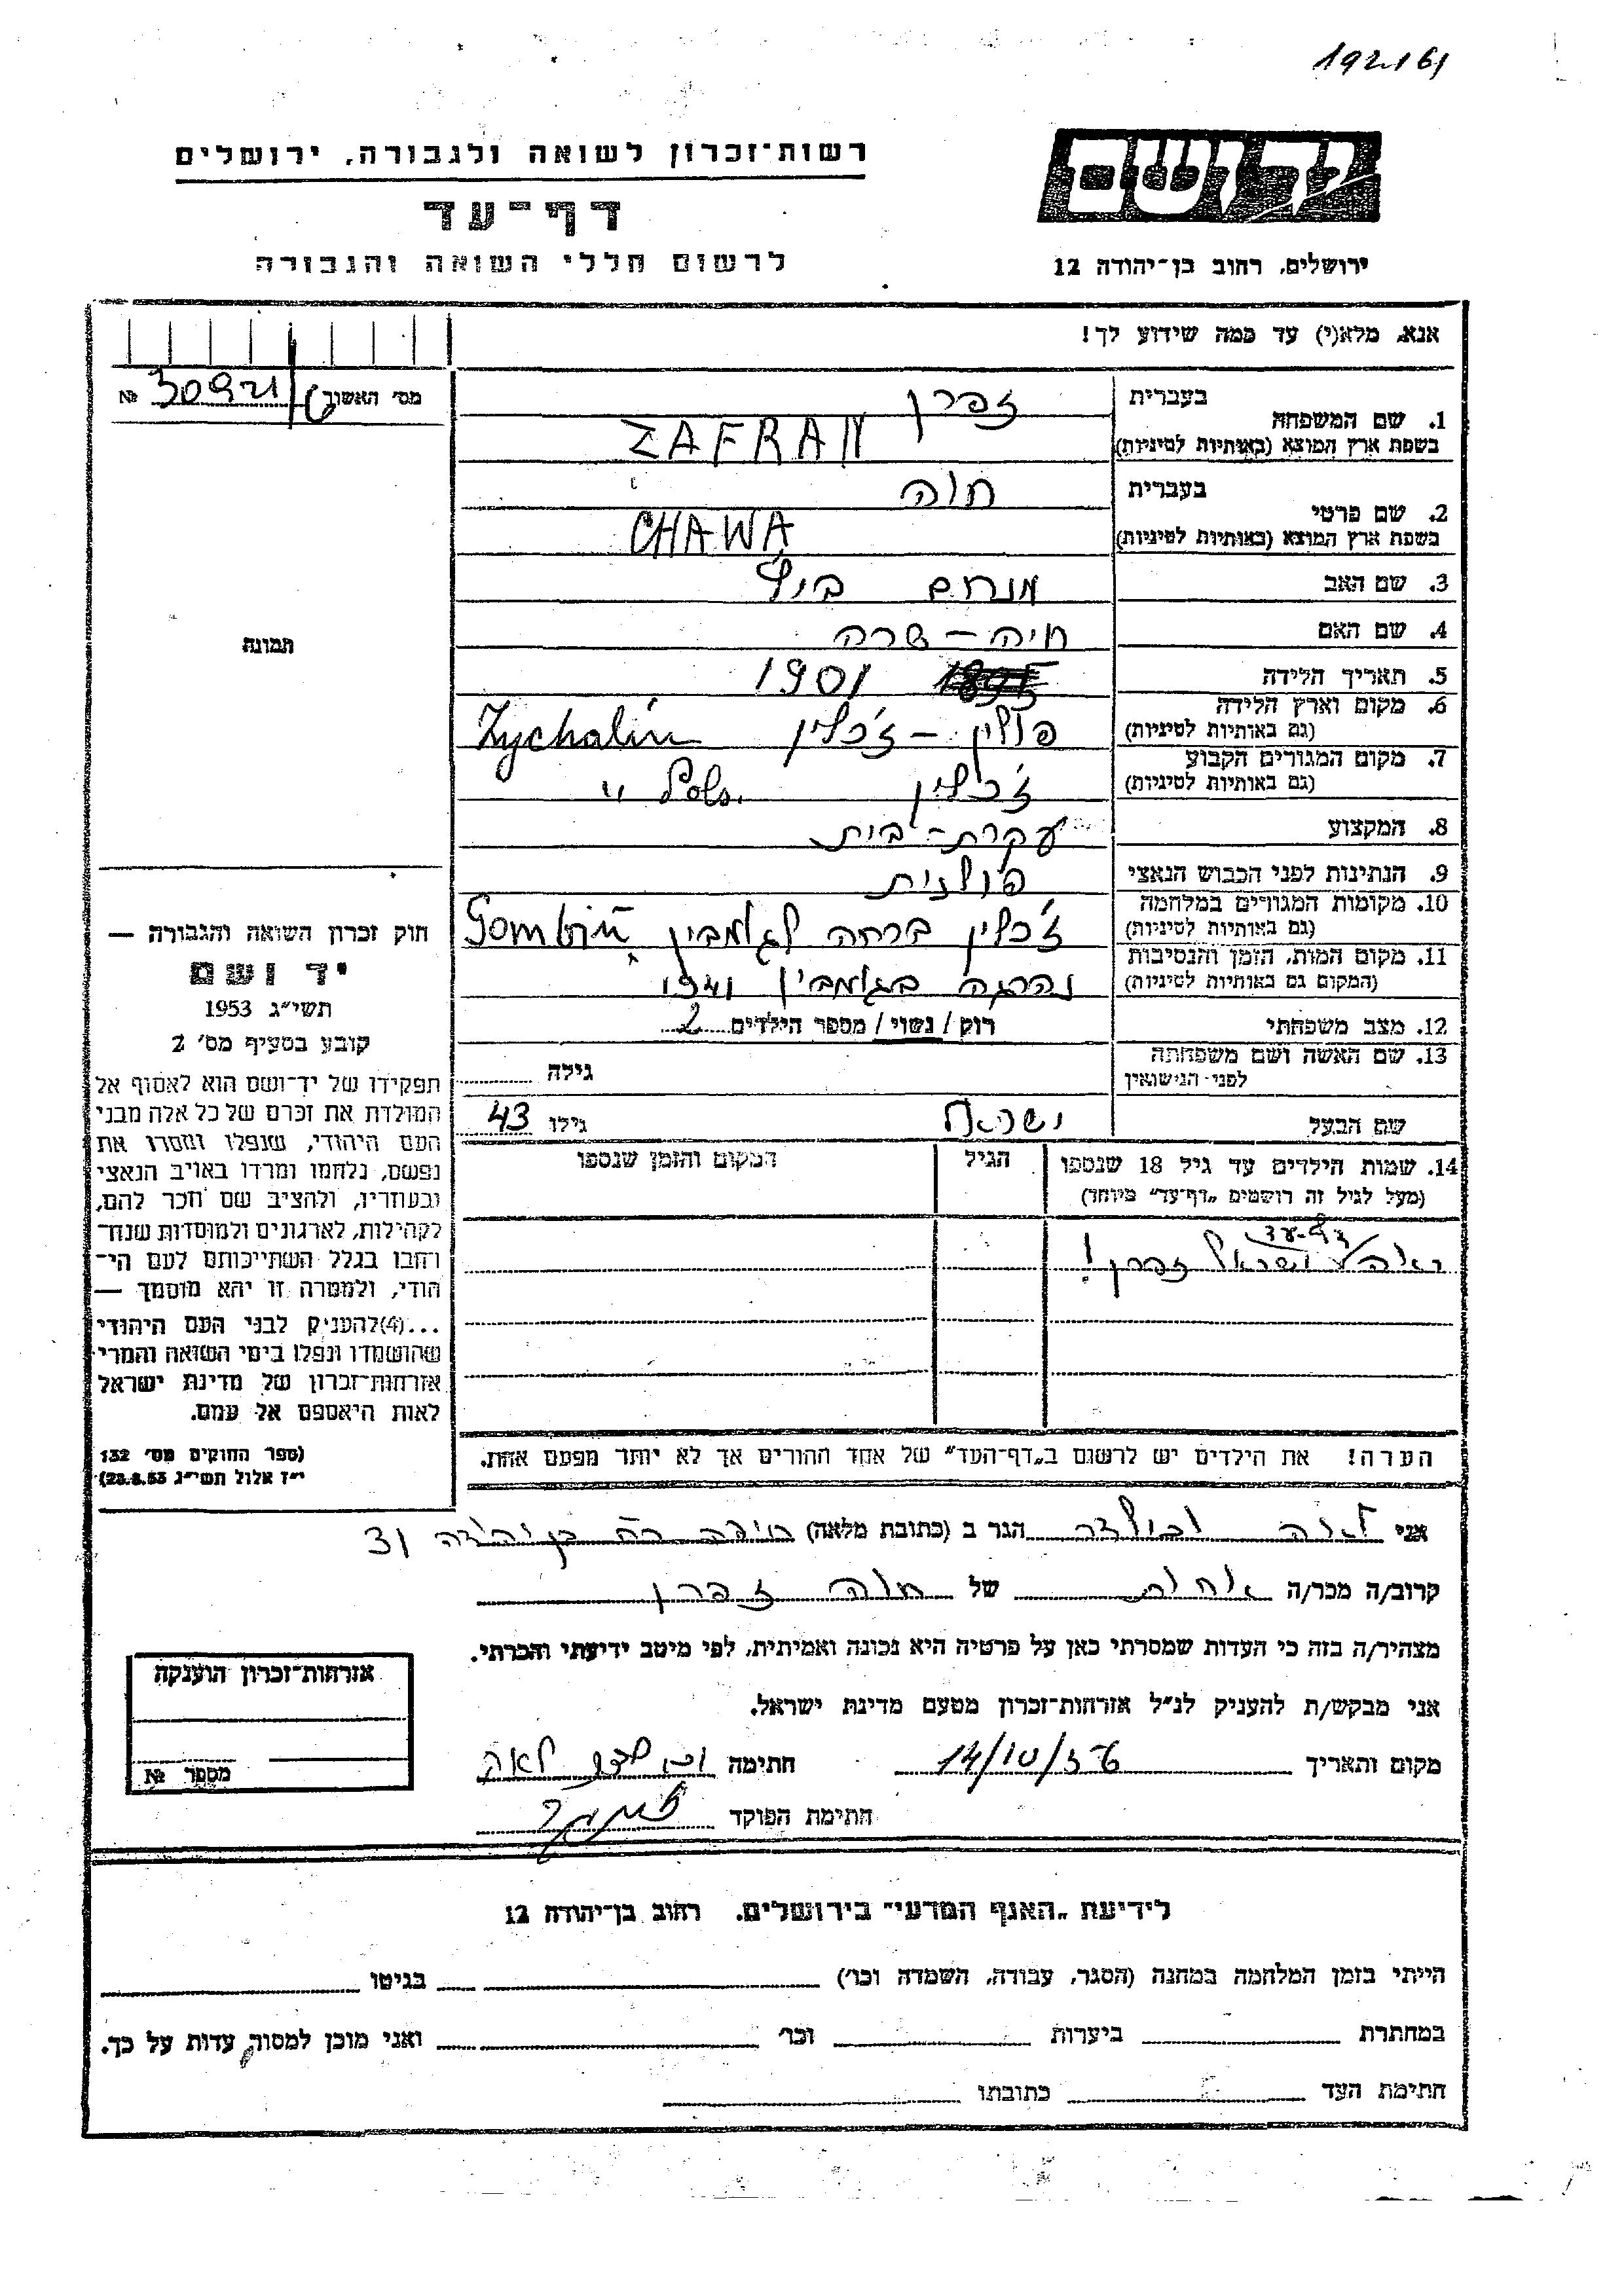 192161
רשות־זכרון לשואה ולגבורה, ירושלים
דף־עד
לרשום חללי השואה והגבורה
יד ושם
ירושלים, רחוב בן־יהודה 12
אנא, מלא(י) עד כמה שידוע לך!
מס׳ האשור № 30921/6
1. שם המשפחה בעברית זפרן
בשפת ארץ המוצא (באותיות לטיניות) ZAFRAN
2. שם פרטי בעברית חוה
בשפת ארץ המוצא (באותיות לטיניות) CHAWA
3. שם האב מנחם
4. שם האם חיה - שרה
תמונה
5. תאריך הלידה 1901
6. מקום וארץ הלידה (גם באותיות לטיניות) פולין - ז׳כלין Zychalin
7. מקום המגורים הקבוע (גם באותיות לטיניות) ז׳כלין Pols. "
8. המקצוע עקרת-בית
9. הנתינות לפני הכבוש הנאצי פולנית
10. מקומות המגורים במלחמה (גם באותיות לטיניות) ז׳כלין ברחה לגומבין Gombin
11. מקום המות, הזמן והנסיבות (המקום גם באותיות לטיניות) נהרגה בגומבין 1941
12. מצב משפחתי רוק / נשוי / מספר הילדים 2
13. שם האשה ושם משפחתה לפני הנישואין גילה
שם הבעל ישראל גילו 43
14. שמות הילדים עד גיל 18 שנספו (מעל לגיל זה רושמים „דף־עד” מיוחד) הגיל המקום והזמן שנספו
דף-עד
ראה ישראל זפרן!
הערה! את הילדים יש לרשום ב„דף־העד” של אחד ההורים אך לא יותר מפעם אחת.
חוק זכרון השואה והגבורה —
יד ושם
תשי״ג 1953
קובע בסעיף מס׳ 2
תפקידו של יד־ושם הוא לאסוף אל
המולדת את זכרם של כל אלה מבני
העם היהודי, שנפלו ומסרו את
נפשם, נלחמו ומרדו באויב הנאצי
ובעוזריו, ולהציב שם וזכר להם,
לקהילות, לארגונים ולמוסדות שנח־
רחבו בגלל השתייכותם לעם הי־
הודי, ולמטרה זו יהא מוסמך —
...(4)להעניק לבני העם היהודי
שהושמדו ונפלו בימי השואה והמרי
אזרחות־זכרון של מדינת ישראל
לאות היאספם אל עמם.
(ספר החוקים מס׳ 132
י״ז אלול תשי״ג 28.8.53)
אני לאה הגר ב (כתובת מלאה) חיפה רח׳ בן יהודה 31
קרוב/ה מכר/ה אחות של חוה זפרן
מצהיר/ה בזה כי העדות שמסרתי כאן על פרטיה היא נכונה ואמיתית, לפי מיטב ידיעתי והכרתי.
אני מבקש/ת להעניק לנ״ל אזרחות־זכרון מטעם מדינת ישראל.
מקום ותאריך 14/10/56 חתימה לאה
חתימת הפוקד
אזרחות־זכרון הוענקה
מספר №
לידיעת „האגף המדעי” בירושלים, רחוב בן־יהודה 12
הייתי בזמן המלחמה במחנה (הסגר, עבודה, השמדה וכו׳) בגיטו
במחתרת ביערות וכו׳ ואני מוכן למסור עדות על כך.
חתימת העד כתובתו